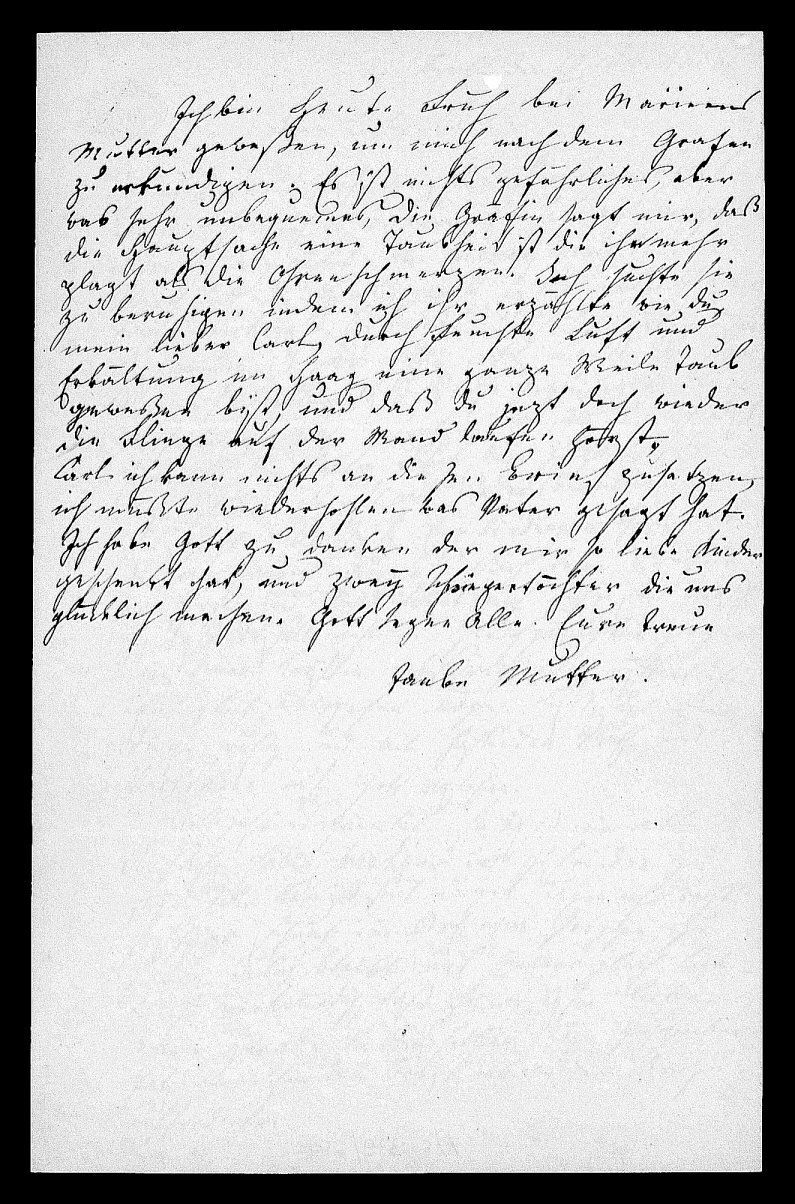 Ich bin Heute Früh bei Mariens
Mutter geweßen, um mich nach dem Grafen
zu erkundigen. Es ist nichts gefährliches, aber
was sehr unbequemes, die Gräfin sagt mir, daß
die Hauptsache eine Taubheit ist die ihn mehr
plagt als die Ohrenschmerzen. Ich suchte sie
zu beruhigen indem ich ihr erzählte wie du,
mein lieber Carl, durch feuchte Luft und
Erkältung im Haag eine ganze Weile Taub
geweßen bist, und daß du jezt doch wieder
die Fliege auf der Wand laufen hörst,
Carl ich kann nichts an dießen Brief zusetzen,
ich müsste wiederhohlen was Vater gesagt hat.
Ich habe Gott zu danken der mir so liebe Kinder
geschenkt hat, und zwey Schwiegertöchter die uns
glücklich machen. Gott segne Alle. Eure treue
Mutter.